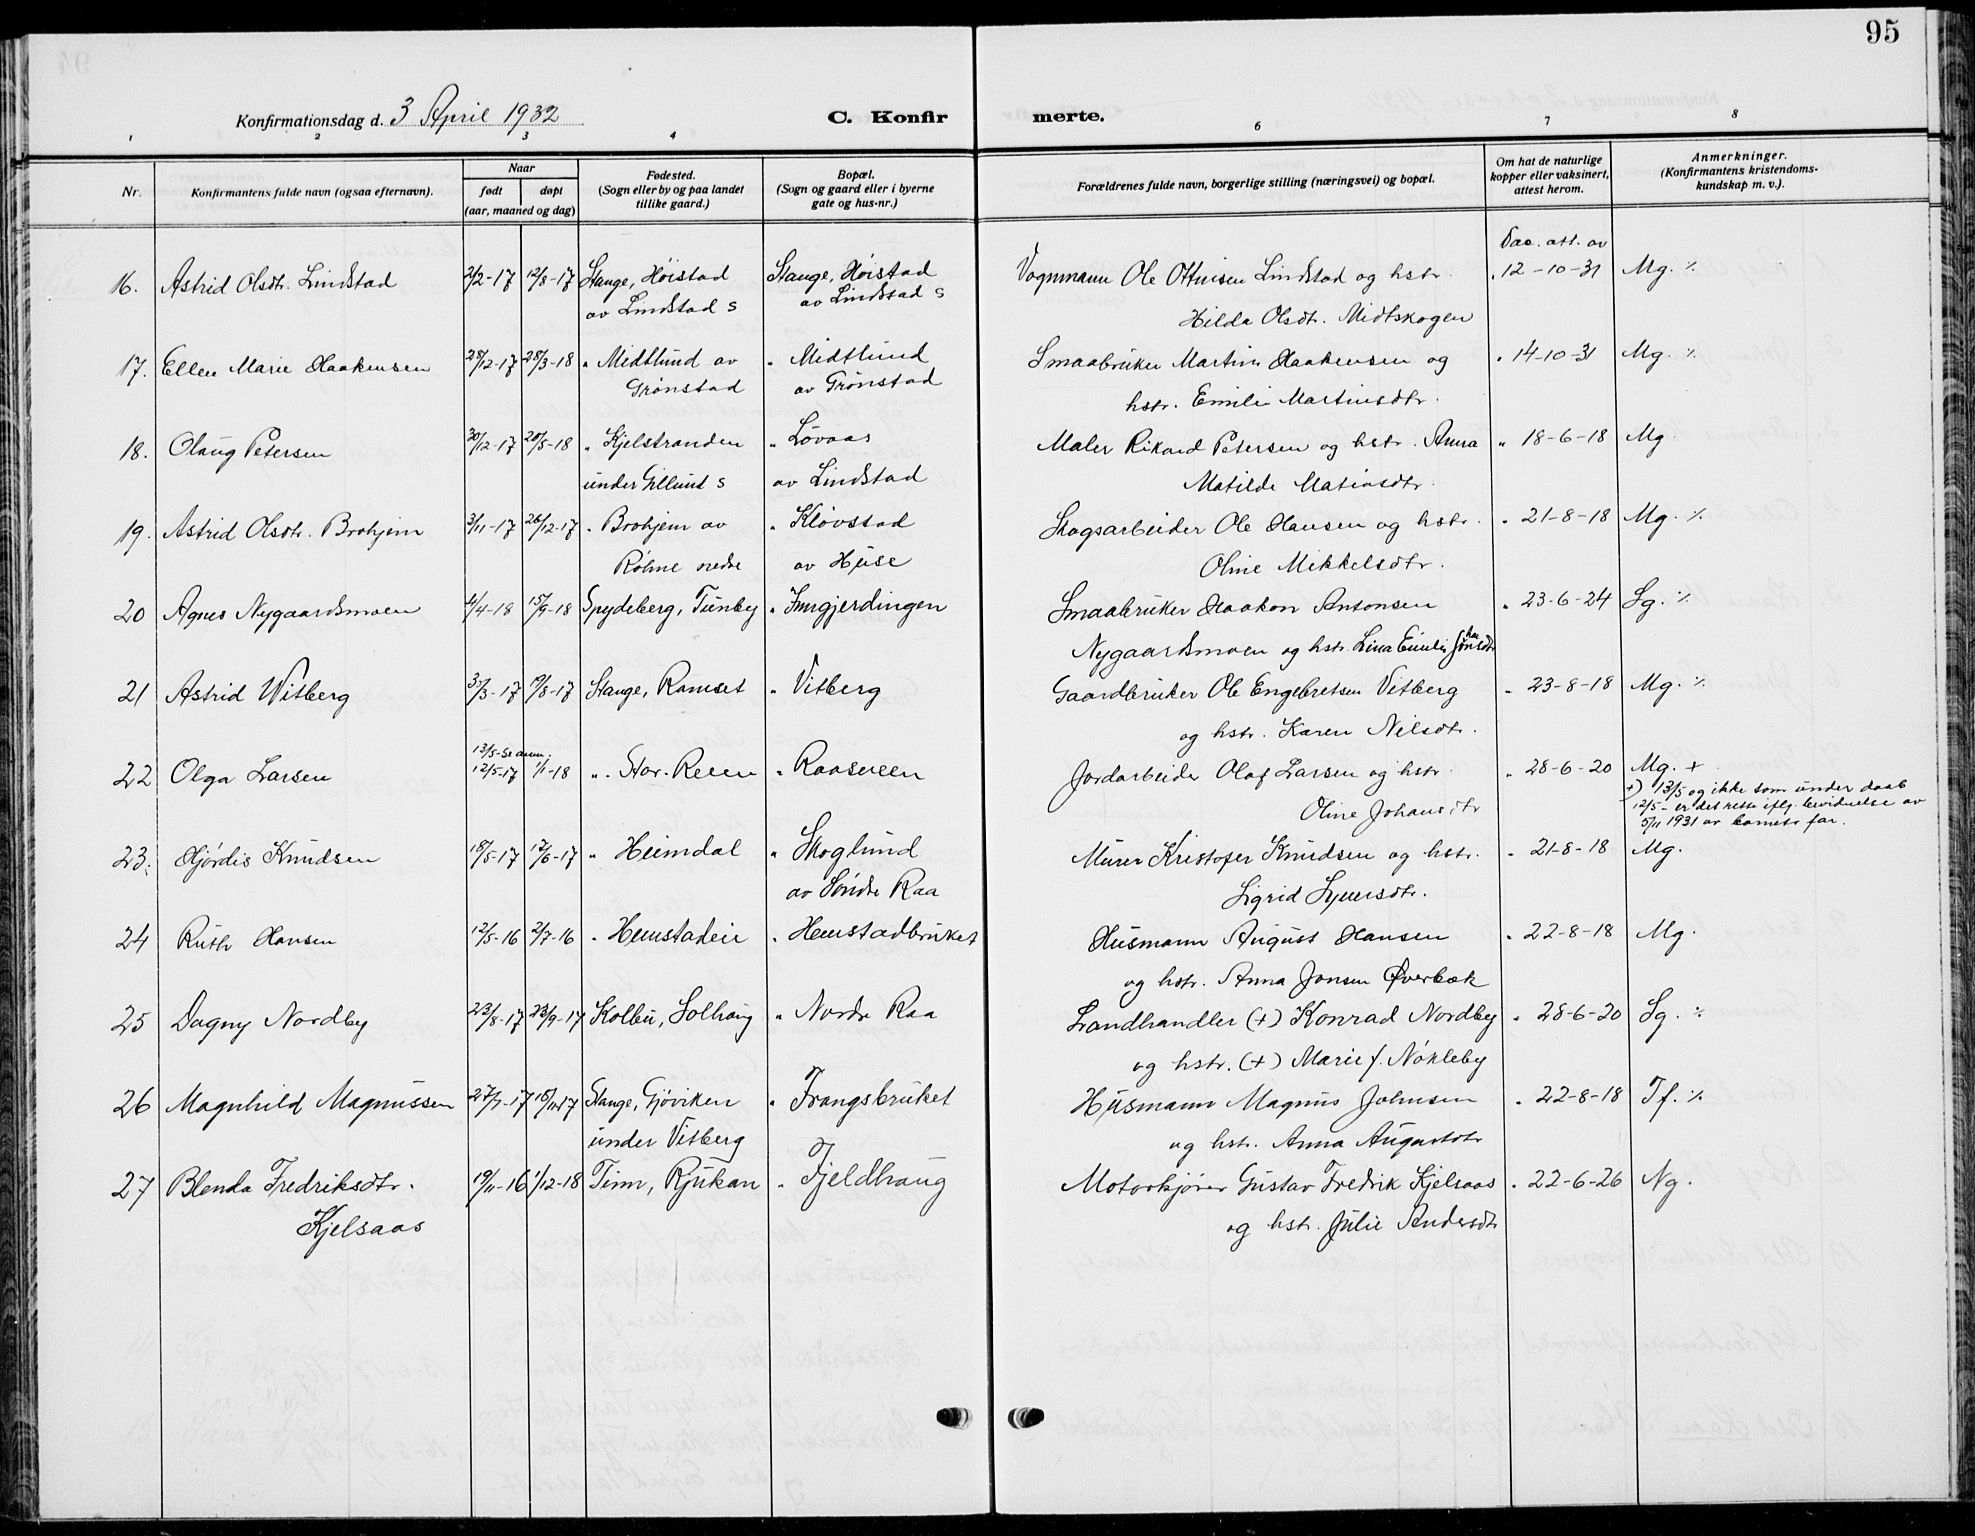 95
Konfirmationsdag d. 3 April 1932
C. Konfirmerte.
1 2 3 4 6 7 8
Nr.
Konfirmantens fulde navn (ogsaa efternavn).
Naar
født
døpt
(aar, maaned og dag)
Fødested.
(Sogn eller by og paa landet
tillike gaard.)
Bopæl.
(Sogn og gaard eller i byerne
gate og hus-nr.)
Forældrenes fulde navn, borgerlige stilling (næringsvei) og bopæl.
Om hat de naturlige
kopper eller vaksinert,
attest herom.
Anmerkninger.
(Konfirmantens kristendoms-
kundskap m. v.).
Vac. att. av
16. Astrid Olsdtr. Lindstad 2/2-17 12/8-17 Stange, Høistad Stange, Høistad Vognmann Ole Ottinsen Lindstad og hstr. " 12-10-31 Mg. %
av Lindstad s av Lindstad s Hilda Olsdtr. Midtskogen
17. Ellen Marie Haakensen 28/12-17 28/3-18 " Midtlund av " Midtlund Smaabruker Martin Haakensen og " 14-10-31 Mg. %
Grønstad av Grønstad hstr. Emilie Martinsdtr.
18. Olaug Petersen 30/12-17 20/5-18 " Kjelstranden " Løvaas Maler Rikard Petersen og hstr. Anna " 18-6-18 Mg.
under Gillund s av Lindstad Matilde Matiasdtr.
19. Astrid Olsdtr. Brohjem 3/11-17 26/12-17 " Brohjem av " Kløvstad Skogsarbeider Ole Hansen og hstr. " 21-8-18 Mg. %
Røhne nedre av Huse Oline Mikkelsdtr.
20 Agnes Nygaardsmoen 4/4-18 15/9-18 Spydeberg, Tunby " Imgjerdingen Smaabruker Haakon Antonsen " 23-6-24 Sg. %
Nygaardsmoen og hstr. Lina Emilie
21 Astrid Witberg 3/3-17 19/8-17 Stange, Romset " Vitberg Gaardbruker Ole Engebretsen Vitberg " 23-8-18 Mg. %
og hstr. Karen Nilsdtr.
13/5-Se anm.
22 Olga Larsen 12/5-17 1/1-18 " Stor-Reen " Raasveen Jordarbeider Olaf Larsen og hstr. " 28-6-20 Mg. +
Oline Johansdtr
+) 13/5 og ikke som under daab
12/5- er det rette iflg. bevidnelse av
5/11 1931 av barnets far.
23. Hjørdis Knudsen 18/5-17 17/6-17 " Heimdal " Skoglund Murer Kristofer Knudsen og hstr. " 21-8-18 Mg.
av Søndre Raa Sigrid Syversdtr.
24 Ruth Hansen 12/5-16 2/7-16 " Hemstadeie " Hemstadbruket Husmann August Hansen " 22-8-18 Mg.
og hstr. Anna Jonsen Øverbæk
25 Dagny Nordby 22/8-17 23/9-17 Kolbu, Solhaug " Nordre Raa Landhandler (+) Konrad Nordby " 28-6-20 Sg. %
og hstr. (+) Marie f. Nøkleby
26 Magnhild Magnussen 27/7-17 18/11-17 Stange, Gjøviken " Frangsbruket Husmann Magnus Johnsen " 22-8-18 Tf. %
under Vitberg og hstr. Anna Augustdtr
27 Blenda Fredriksdtr. 19/11-16 1/12-18 Tinn, Rjukan " Fjeldhaug Motorkjører Gustav Fredrik Kjelsaas " 22-6-26 Ng.
Kjelsaas og hstr. Julie Andersdtr